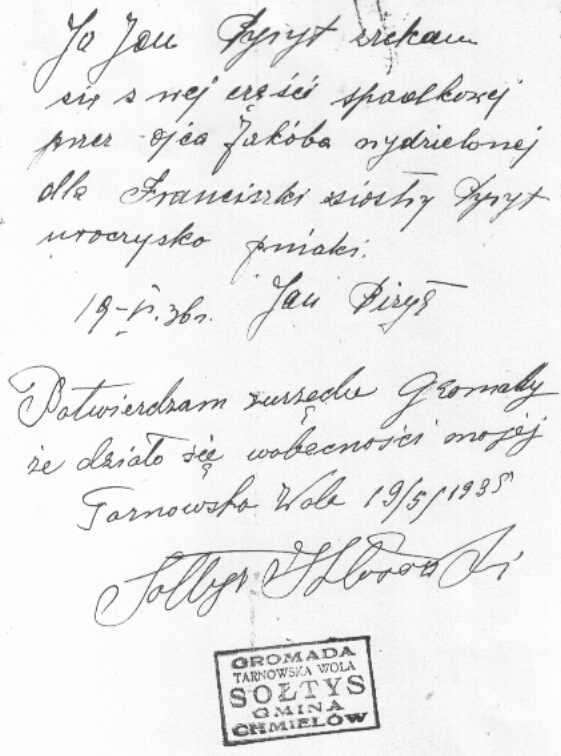 Ja Jan Pyryt zrekam
się z wej części spadkowej
przez ojca Jakóba wydzielonej
dla Franciszki siostry Pyryt
uroczysko pniaki.
19-V.36r. Jan Piryt
Potwierdzam zurzędu Gromady
że działo się wobecności mojej
Tarnowska Wola 19/5/1935
Sołtys
GROMADA
TARNOWSKA WOLA
SOŁTYS
GMINA
CHMIELÓW